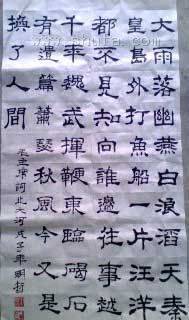 大雨落幽燕白浪滔天秦
皇島外打魚船一片汪洋
都不見知向誰邊往事越
千年魏武揮鞭東臨碣石
有遺篇蕭瑟秋風今又是
換了人間
毛主席詞北大河戊子年明哲